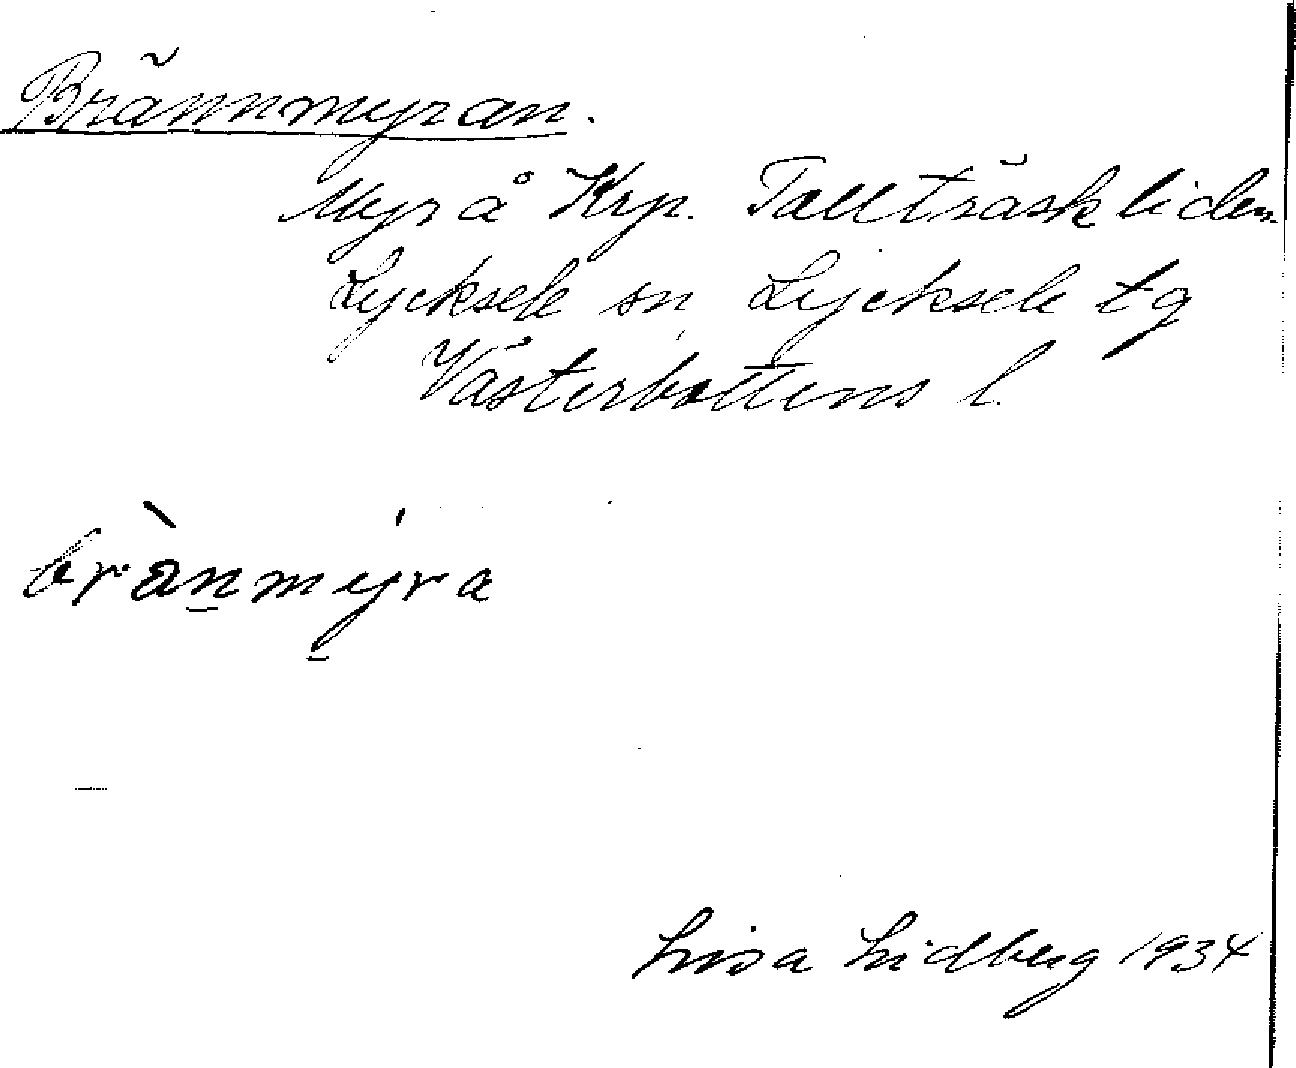 Brännmyran.
Myr å Krp. Tallträskliden
Lycksele sn, Lycksele tg
Västerbottens l.
brànmýra
Lisa Lidberg 1934